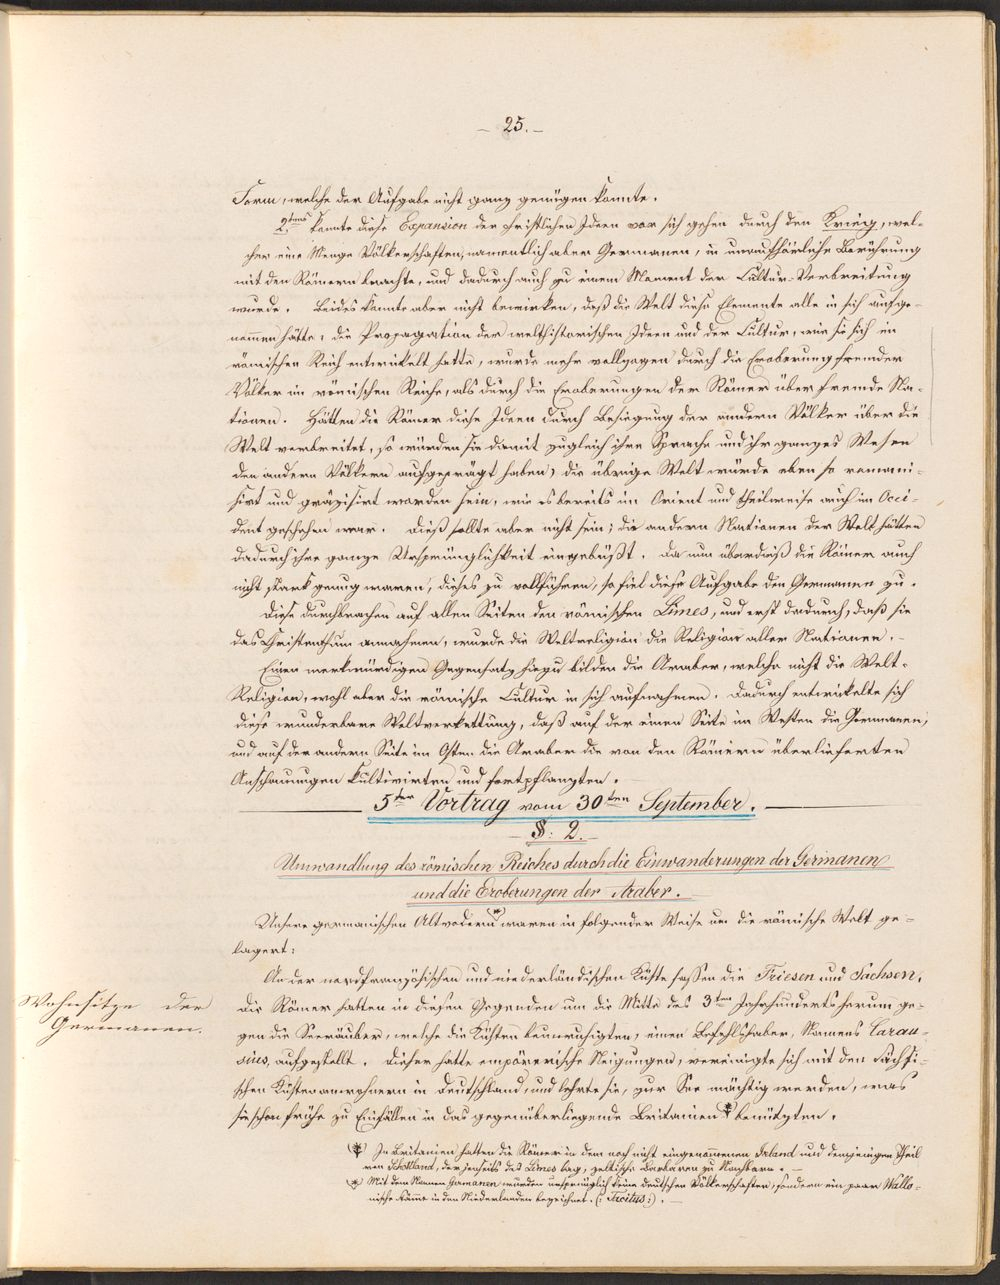 - 25. -
Form, welche der Aufgabe nicht ganz genügen konnte.
2.tens konnte diese Expansion der christlichen Ideen vor sich gehen durch den Krieg, wel-
cher eine Menge Völkerschaften, namentlich aber Germanen, in unaufhörliche Berührung
mit den Römern brachte, und dadurch auch zu einem Moment der Cultur-Verbreitung
wurde. Beides konnte aber nicht bewirken, daß die Welt diese Elemente alle in sich aufge-
nommen hätte; die Propagation der welthistorischen Ideen und der Cultur, wie sie sich im
römischen Reich entwickelt hatte, wurde mehr vollzogen durch die Eroberung fremder
Völker im römischen Reiche, als durch die Eroberungen der Römer über fremde Na-
tionen. Hätten die Römer diese Ideen durch Besiegung der andern Völker über die
Welt verbreitet, so würden sie damit zugleich ihre Sprache und ihr ganzes Wesen
den andern Völkern aufgeprägt haben; die übrige Welt würde eben so romani-
sirt und gräzisirt worden sein, wie es bereits im Orient und theilweise auch im Occi-
dent geschehen war. Dieß sollte aber nicht sein; die andern Nationen der Welt hätten
dadurch ihre ganze Ursprünglichkeit eingebüßt. Da nun überdieß die Römer auch
nicht stark genug waren, dieses zu vollführen, so fiel diese Aufgabe den Germanen zu.
Diese durchbrachen auf allen Seiten den römischen Limes, und erst dadurch, daß sie
das Christenthum annahmen, wurde die Weltreligion die Religion aller Nationen. -
Einen merkwürdigen Gegensatz hiezu bilden die Araber, welche nicht die Welt-
Religion, wohl aber die römische Cultur in sich aufnahmen. Dadurch entwickelte sich
diese wunderbare Weltverkettung, daß auf der einen Seite im Westen die Germanen,
und auf der andern Seite im Osten die Araber die von den Römern überlieferten
Anschauungen kultivirten und fortpflanzten.
5ter Vortrag vom 30ten September.
§: 2.
Umwandlung des römischen Reiches durch die Einwanderungen der Germanen
und die Eroberungen der Araber.
Unsere germanischen Altvodern (*) waren in folgender Weise um die römische Welt ge-
lagert:
An der nordfranzösischen und niederländischen Küste saßen die Friesen und Sachsen,
Wohnsitze der
Germanen.
die Römer hatten in diesen Gegenden um die Mitte des 3ten Jahrhunderts herum ge-
gen die Seeräuber, welche die Küsten beunruhigten, einen Befehlshaber, Namens Carau-
sius, aufgestellt. Dieser hatte empörerische Neigungen, vereinigte sich mit den sächsi-
schen Küstenanwohnern in Deutschland, und lehrte sie, zur See mächtig werden, was
sie schon frühe zu Einfällen in das gegenüberliegende Britanien (*) benützten.
(*) In Britanien hatten die Römer in dem noch nicht eingenommenen Irland und demjenigen Theil
von Schottland, der jenseits des Limes lag, zeltische Barbaren zu Nachbarn. -
(*) Mit dem Namen Germanen wurden ursprünglich keine deutschen Völkerschaften, sondern ein paar Wallo-
nische Stämme in den Niederlanden bezeichnet. (: Tacitus :). -